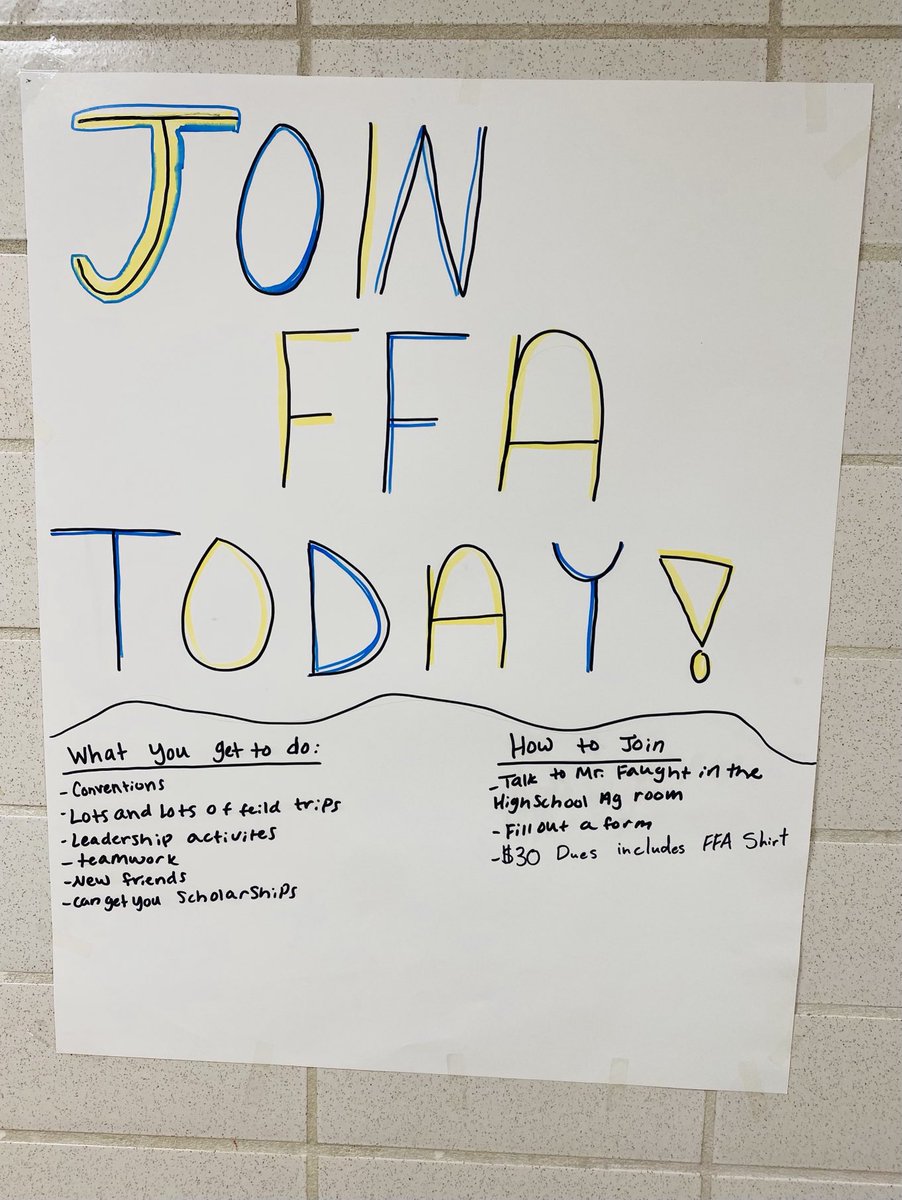 JOIN
FFA
TODAY!
What you get to do:
- Conventions
- Lots and Lots of feild trips
- Leadership activites
- teamwork
- New friends
- can get you Scholarships
How to Join
- Talk to Mr. Faught in the
High School Ag room
- Fill out a form
- $30 Dues includes FFA Shirt